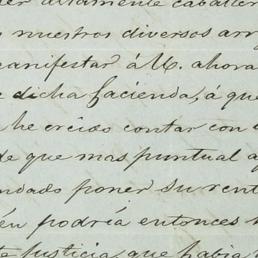 altamente caballer
nuestros diversos arr
manifestar á V. ahora
dicha hacienda, á que
he creido contar con
de que mas puntual
poner su rent
podría entonces
justicia, que habia